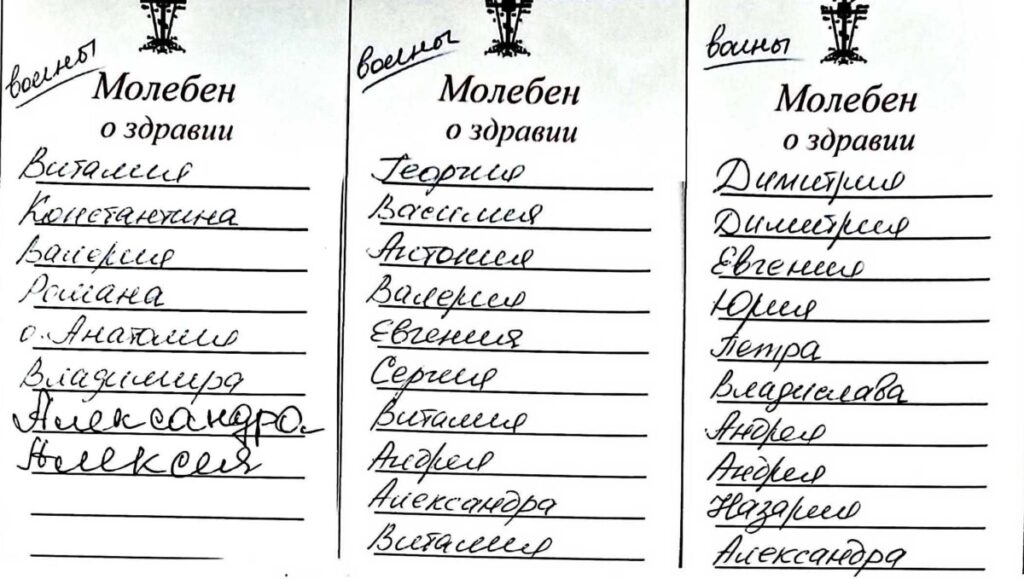 воины
Молебен
о здравии
Виталия
Константина
Валерия
Романа
о. Анатолия
Владимира
Александра
Алексея
воины
Молебен
о здравии
Георгия
Василия
Антония
Валерия
Евгения
Сергия
Виталия
Андрея
Александра
Виталия
воины
Молебен
о здравии
Димитрия
Димитрия
Евгения
Юрия
Петра
Владислава
Андрея
Андрея
Назария
Александра